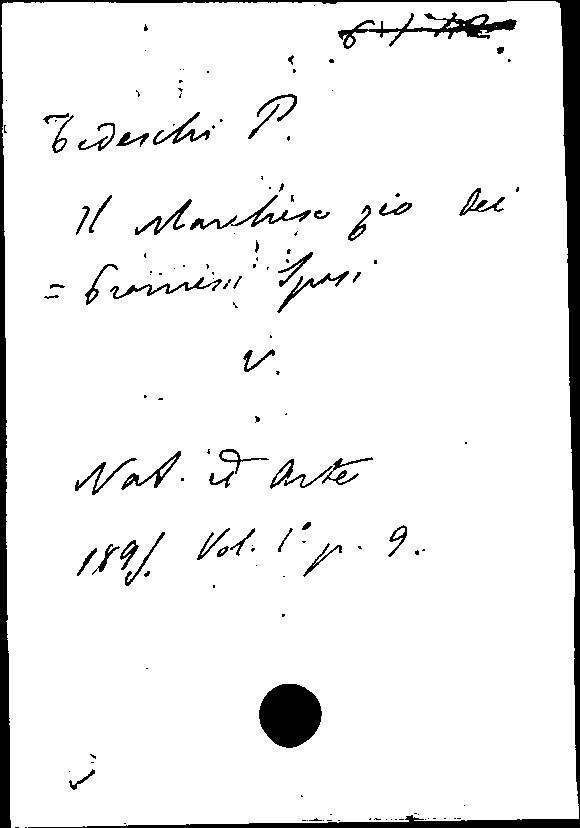 Tedeschi P.
Il Marchese zio dei
= Promessi Sposi
V.
Nat. ed Arte
189 Vol. 1º p. 9.